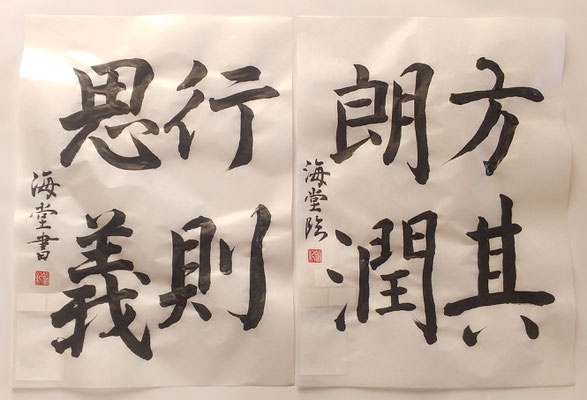 方其
朗潤
海堂臨
行則
思義
海堂書